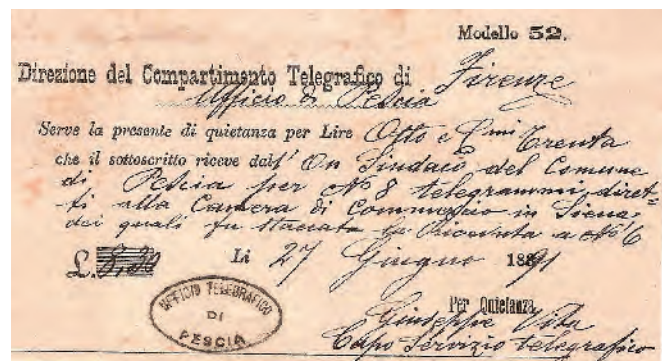 Modello 52.
Direzione del Compartimento Telegrafico di Firenze
Ufficio di Pescia
Serve la presente di quietanza per Lire Otto e Cmi Trenta
che il sottoscritto riceve dall' On Sindaco del Comune
di Pescia per No 8 telegrammi diret-
ti alla Camera di Commercio in Siena
dei quali fu staccata la Ricevuta a No 6
£. 8,30 Li 27 Giugno 1891
UFFICIO TELEGRAFICO
DI
PESCIA
Per Quietanza
Giuseppe Vita
Capo Servizio telegrafico